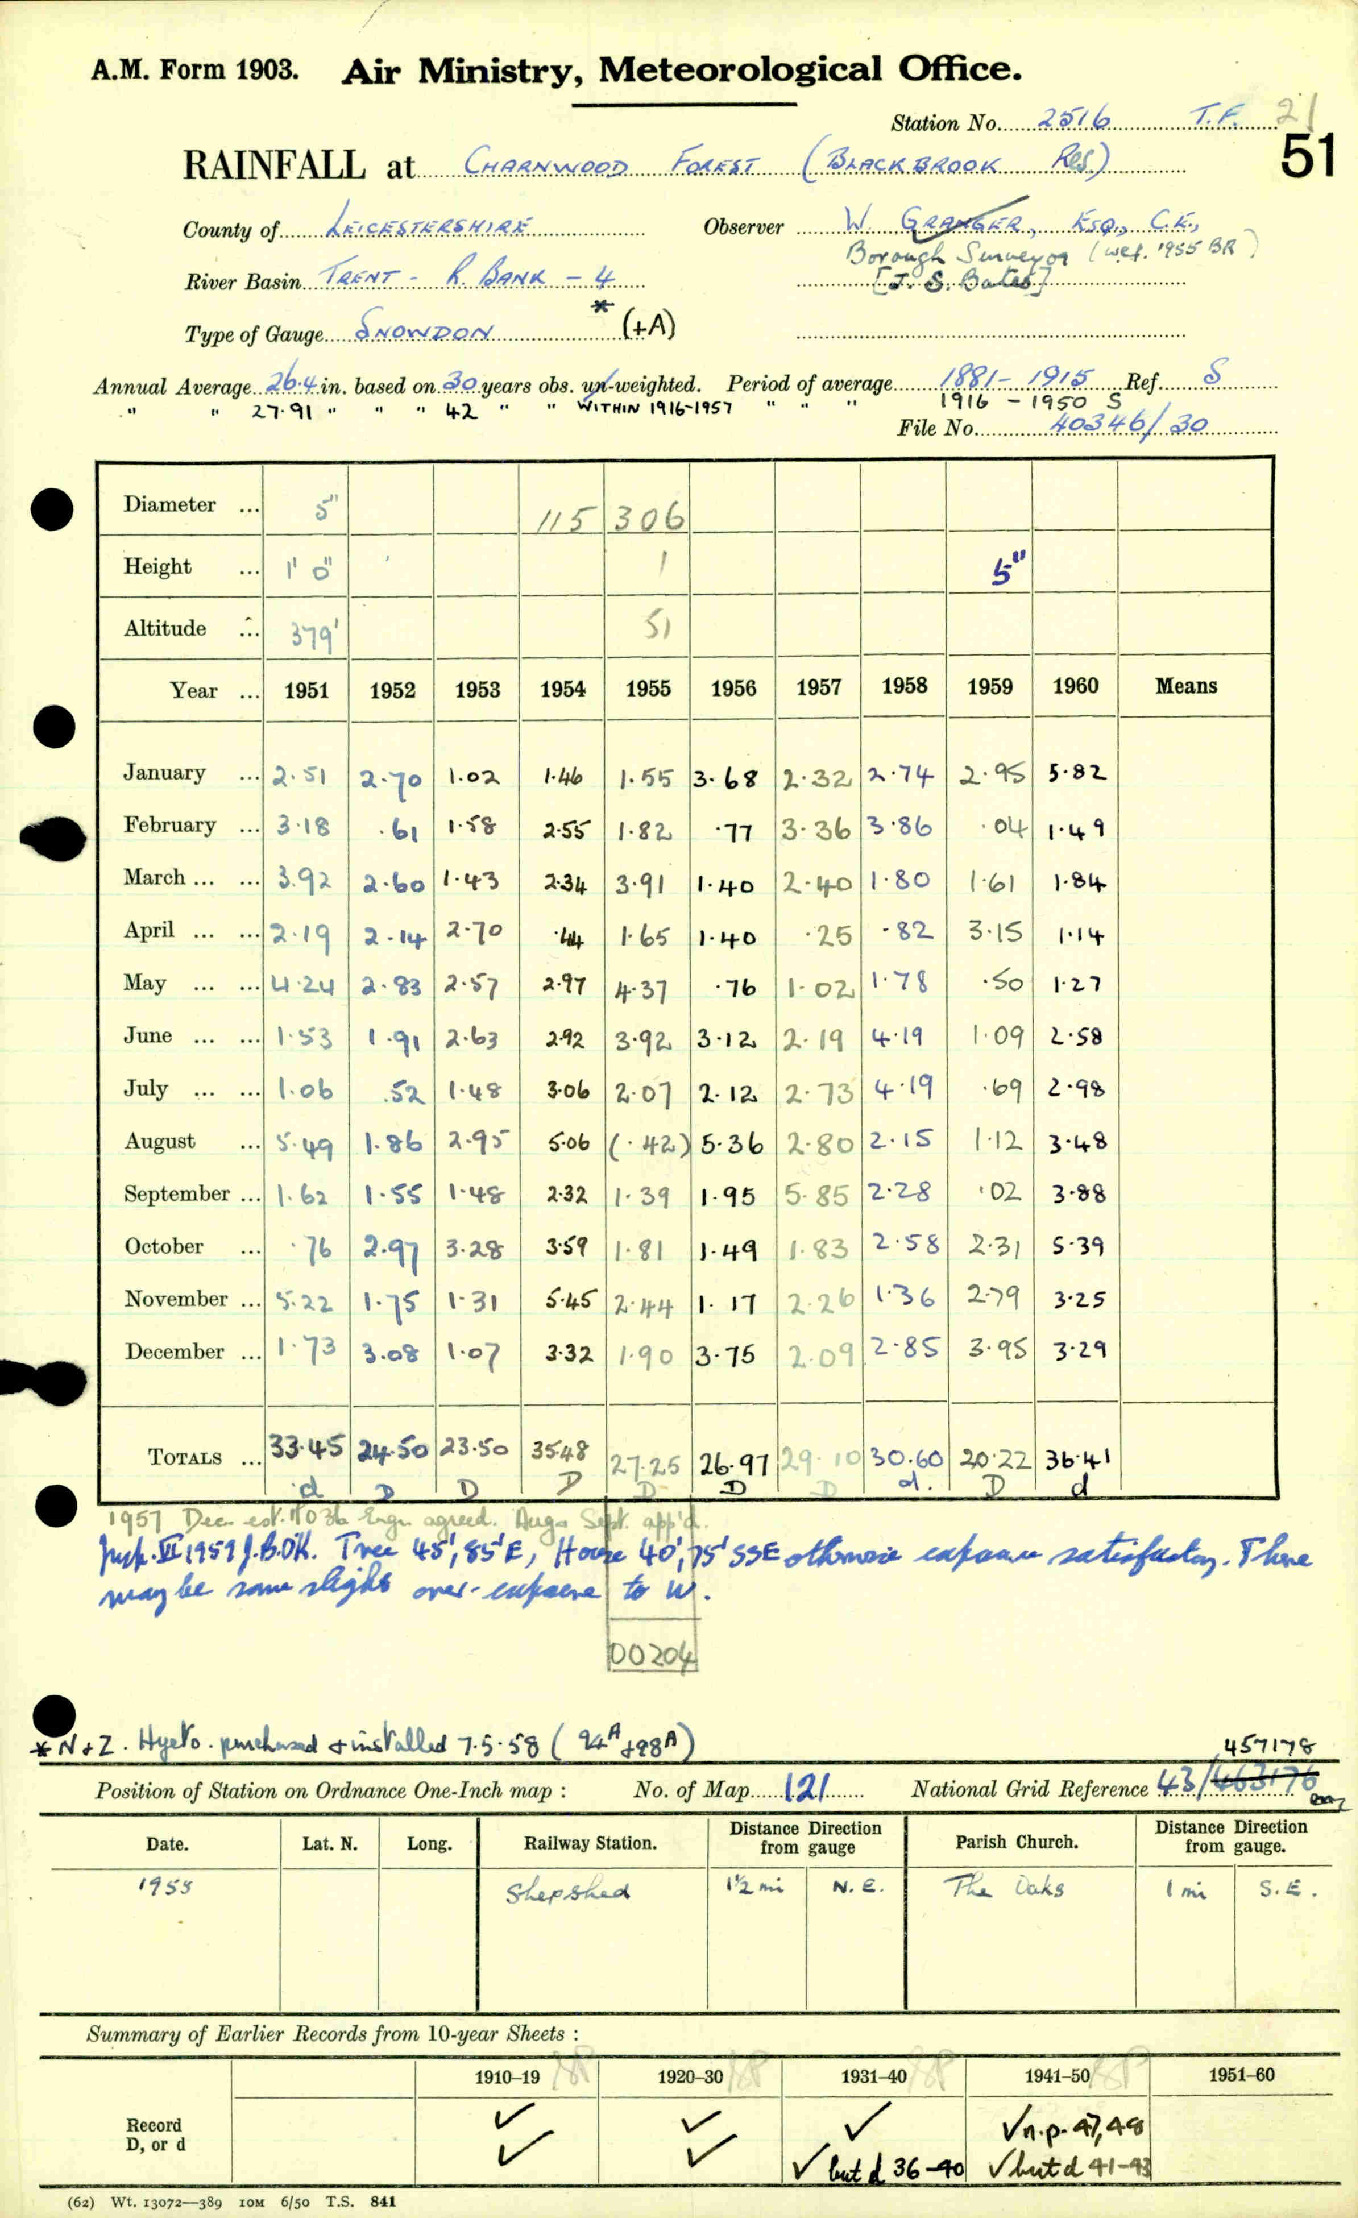 A.M. Form 1903. Air Ministry, Meteorological Office.
Station No. 2516 T.F. 21
51
RAINFALL at CHARNWOOD FOREST (BLACKBROOK Res)
County of LEICESTERSHIRE Observer W. GRANGER, ESQ., C.E.,
Borough Surveyor (wef. 1955 BR)
River Basin TRENT - R. BANK - 4 [J. S. Bates]
Type of Gauge SNOWDON * (+A)
Annual Average 26.4 in. based on 30 years obs. un-weighted. Period of average 1881-1915 Ref. S
" " 27.91 " " " 42 " " WITHIN 1916-1957 " " " 1916 - 1950 S
File No. 40346/30
Diameter ... 5" 115 306
Height ... 1' 0" 1 5"
Altitude ... 379' 51
Year ... 1951 1952 1953 1954 1955 1956 1957 1958 1959 1960 Means
January ... 2.51 2.70 1.02 1.46 1.55 3.68 2.32 2.74 2.95 5.82
February ... 3.18 .61 1.58 2.55 1.82 .77 3.36 3.86 .04 1.49
March ... ... 3.92 2.60 1.43 2.34 3.91 1.40 2.40 1.80 1.61 1.84
April ... ... 2.19 2.14 2.70 .44 1.65 1.40 .25 .82 3.15 1.14
May ... ... 4.24 2.83 2.57 2.97 4.37 .76 1.02 1.78 .50 1.27
June ... ... 1.53 1.91 2.63 2.92 3.92 3.12 2.19 4.19 1.09 2.58
July ... ... 1.06 .52 1.48 3.06 2.07 2.12 2.73 4.19 .69 2.98
August ... 5.49 1.86 2.95 5.06 (.42) 5.36 2.80 2.15 1.12 3.48
September ... 1.62 1.55 1.48 2.32 1.39 1.95 5.85 2.28 .02 3.88
October ... .76 2.97 3.28 3.59 1.81 1.49 1.83 2.58 2.31 5.39
November ... 5.22 1.75 1.31 5.45 2.44 1.17 2.26 1.36 2.79 3.25
December ... 1.73 3.08 1.07 3.32 1.90 3.75 2.09 2.85 3.95 3.29
TOTALS ... 33.45 24.50 23.50 35.48 27.25 26.97 29.10 30.60 20.22 36.41
d D D D D D D d. D d
1957 Dec. est. Engr agreed. Aug & Sept. app'd.
Insp. VI 1959 J.B. OK. Tree 45', 85' E, House 40', 75' SSE otherwise exposure satisfactory. There
may be some slight over-exposure to W.
00204
* N & Z. Hyeto. purchased & installed 7.5.58 (94A + 98A)
457178
Position of Station on Ordnance One-Inch map : No. of Map 121 National Grid Reference 43/463176
Date. Lat. N. Long. Railway Station. Distance from Direction gauge Parish Church. Distance from Direction gauge.
1955 Shepshed 1½ mi N.E. The Oaks 1 mi S.E.
Summary of Earlier Records from 10-year Sheets :
1910–19 1920–30 1931–40 1941–50 1951–60
Record ✓ ✓ ✓ ✓ n.p. 47, 48
D, or d ✓ ✓ ✓ but d 36-40 ✓ but d 41-43
(62) Wt. 13072—389 10M 6/50 T.S. 841